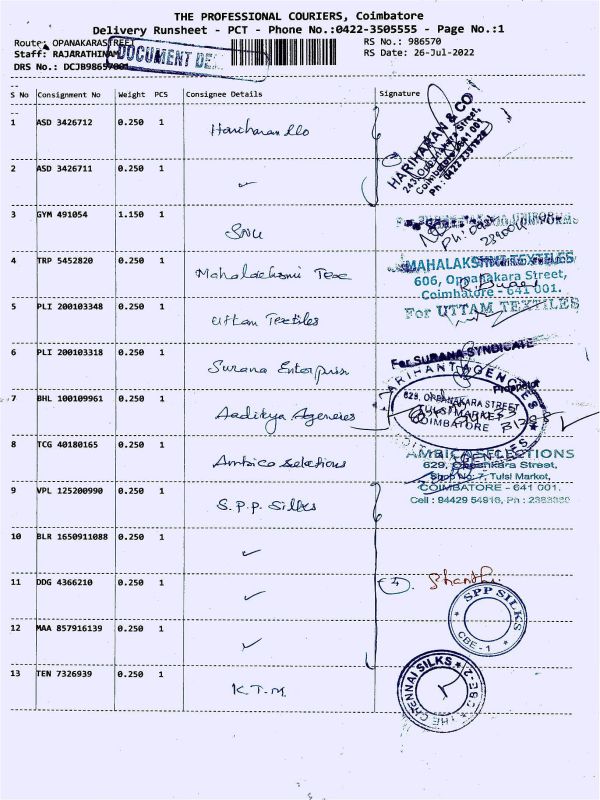 THE PROFESSIONAL COURIERS, Coimbatore
Delivery Runsheet - PCT - Phone No.:0422-3505555 - Page No.:1
Route: OPANAKARASTREET
RS No.: 986570
Staff: RAJARATHINAM
DOCUMENT DE
RS Date: 26-Jul-2022
DRS No.: DCJB98657001
S No Consignment No Weight PCS Consignee Details Signature
1 ASD 3426712 0.250 1 Hariharan
HARIHARAN & CO
243, Oppanakara Street,
Coimbatore-641 001
2 ASD 3426711 0.250 1
3 GYM 491054 1.150 1
4 TRP 5452820 0.250 1 Mahalakshmi Tex
MAHALAKSHMI TEXTILES
606, Oppanakara Street,
Coimbatore - 641 001.
5 PLI 200103348 0.250 1 Uttam Textiles
For UTTAM TEXTILES
6 PLI 200103318 0.250 1 Surana Enterprises
For SURANA SYNDICATE
Proprietor
7 BHL 100109961 0.250 1 Aaditya Agencies
ARIHANT AGENCIES
629, OPPANAKARA STREET
TULSI MARKET
COIMBATORE
8 TCG 40180165 0.250 1 Ambica Selections
AMBICA SELECTIONS
629, Oppankara Street,
Shop No: 7, Tulsi Market,
COIMBATORE - 641 001.
Cell : 94429 54916, Ph :
9 VPL 125200990 0.250 1 S.P.P. Silks
10 BLR 1650911088 0.250 1
11 DDG 4366210 0.250 1 Shanthi
SPP SILKS
CBE - 1
12 MAA 857916139 0.250 1
13 TEN 7326939 0.250 1 K.T.M
THE CHENNAI SILKS
CBE-2